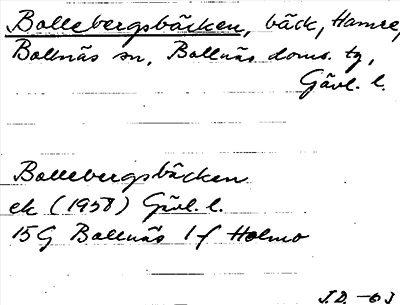 Bollebergsbäcken, bäck, Hamre,
Bollnäs sn, Bollnäs doms. tg,
Gävl. l.
Bollebergsbäcken
ek (1958) Gävl. l.
15G Bollnäs 1-f Holmo
J.D. -63